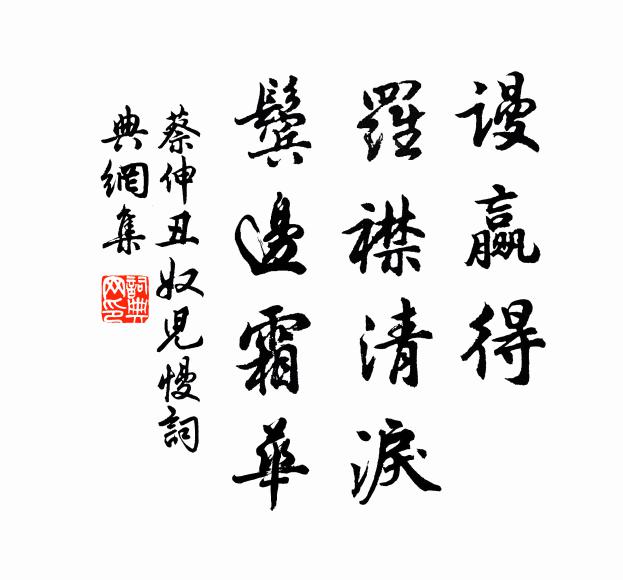 謾贏得
羅襟清淚
鬢邊霜華
蔡伸丑奴兒慢詞
典網集
詞典網印